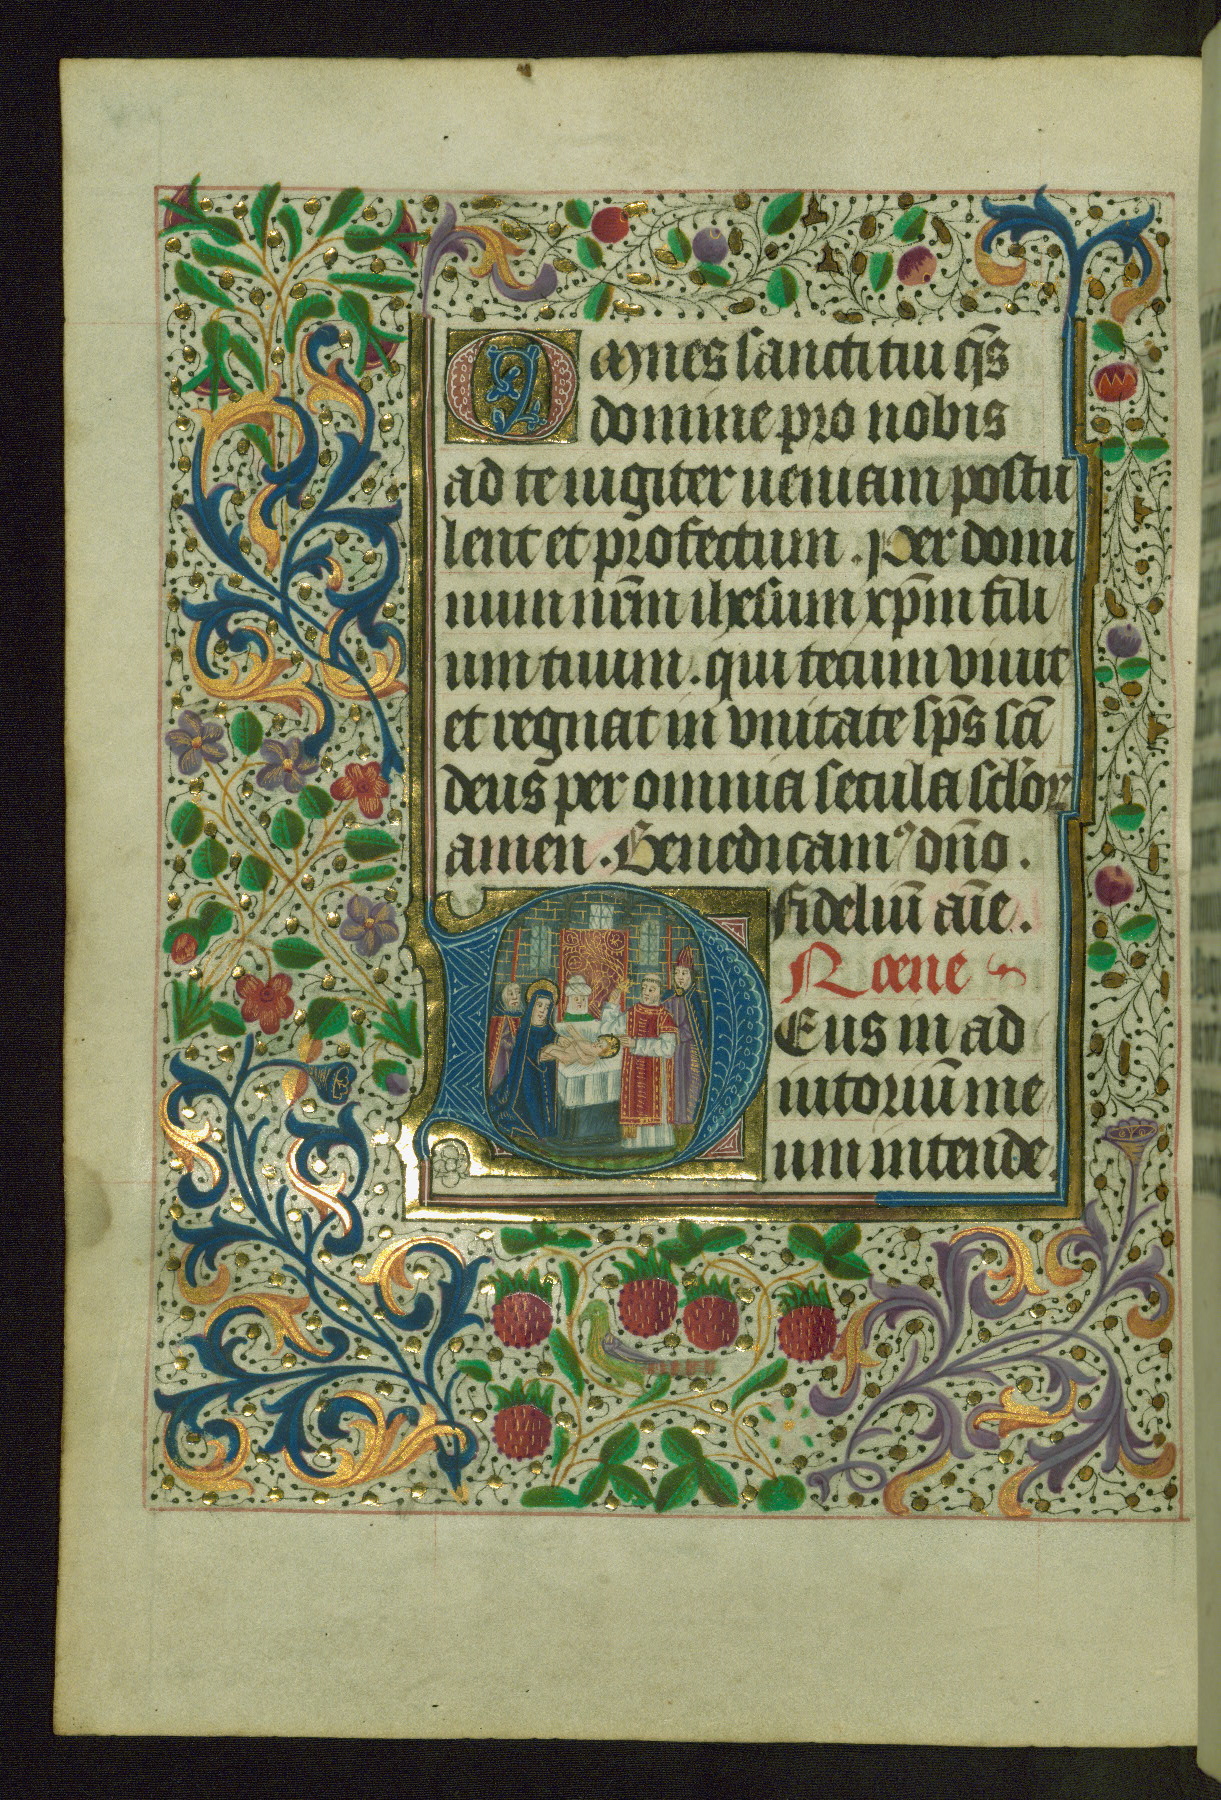 Omnes sancti tui q̄s
domine pro nobis
ad te iugiter ueniam postu
lent et profectum. Per domi
num nr̄m ihesum xp̄m fili
um tuum. qui tecum viuit
et regnat in vnitate sp̄s sc̄i
deus per omnia secula sc̄lor
amen. Benedicamꝰ dn̄o.
fideliū aīe.
None
Deus in ad
iutoriū me
um intende